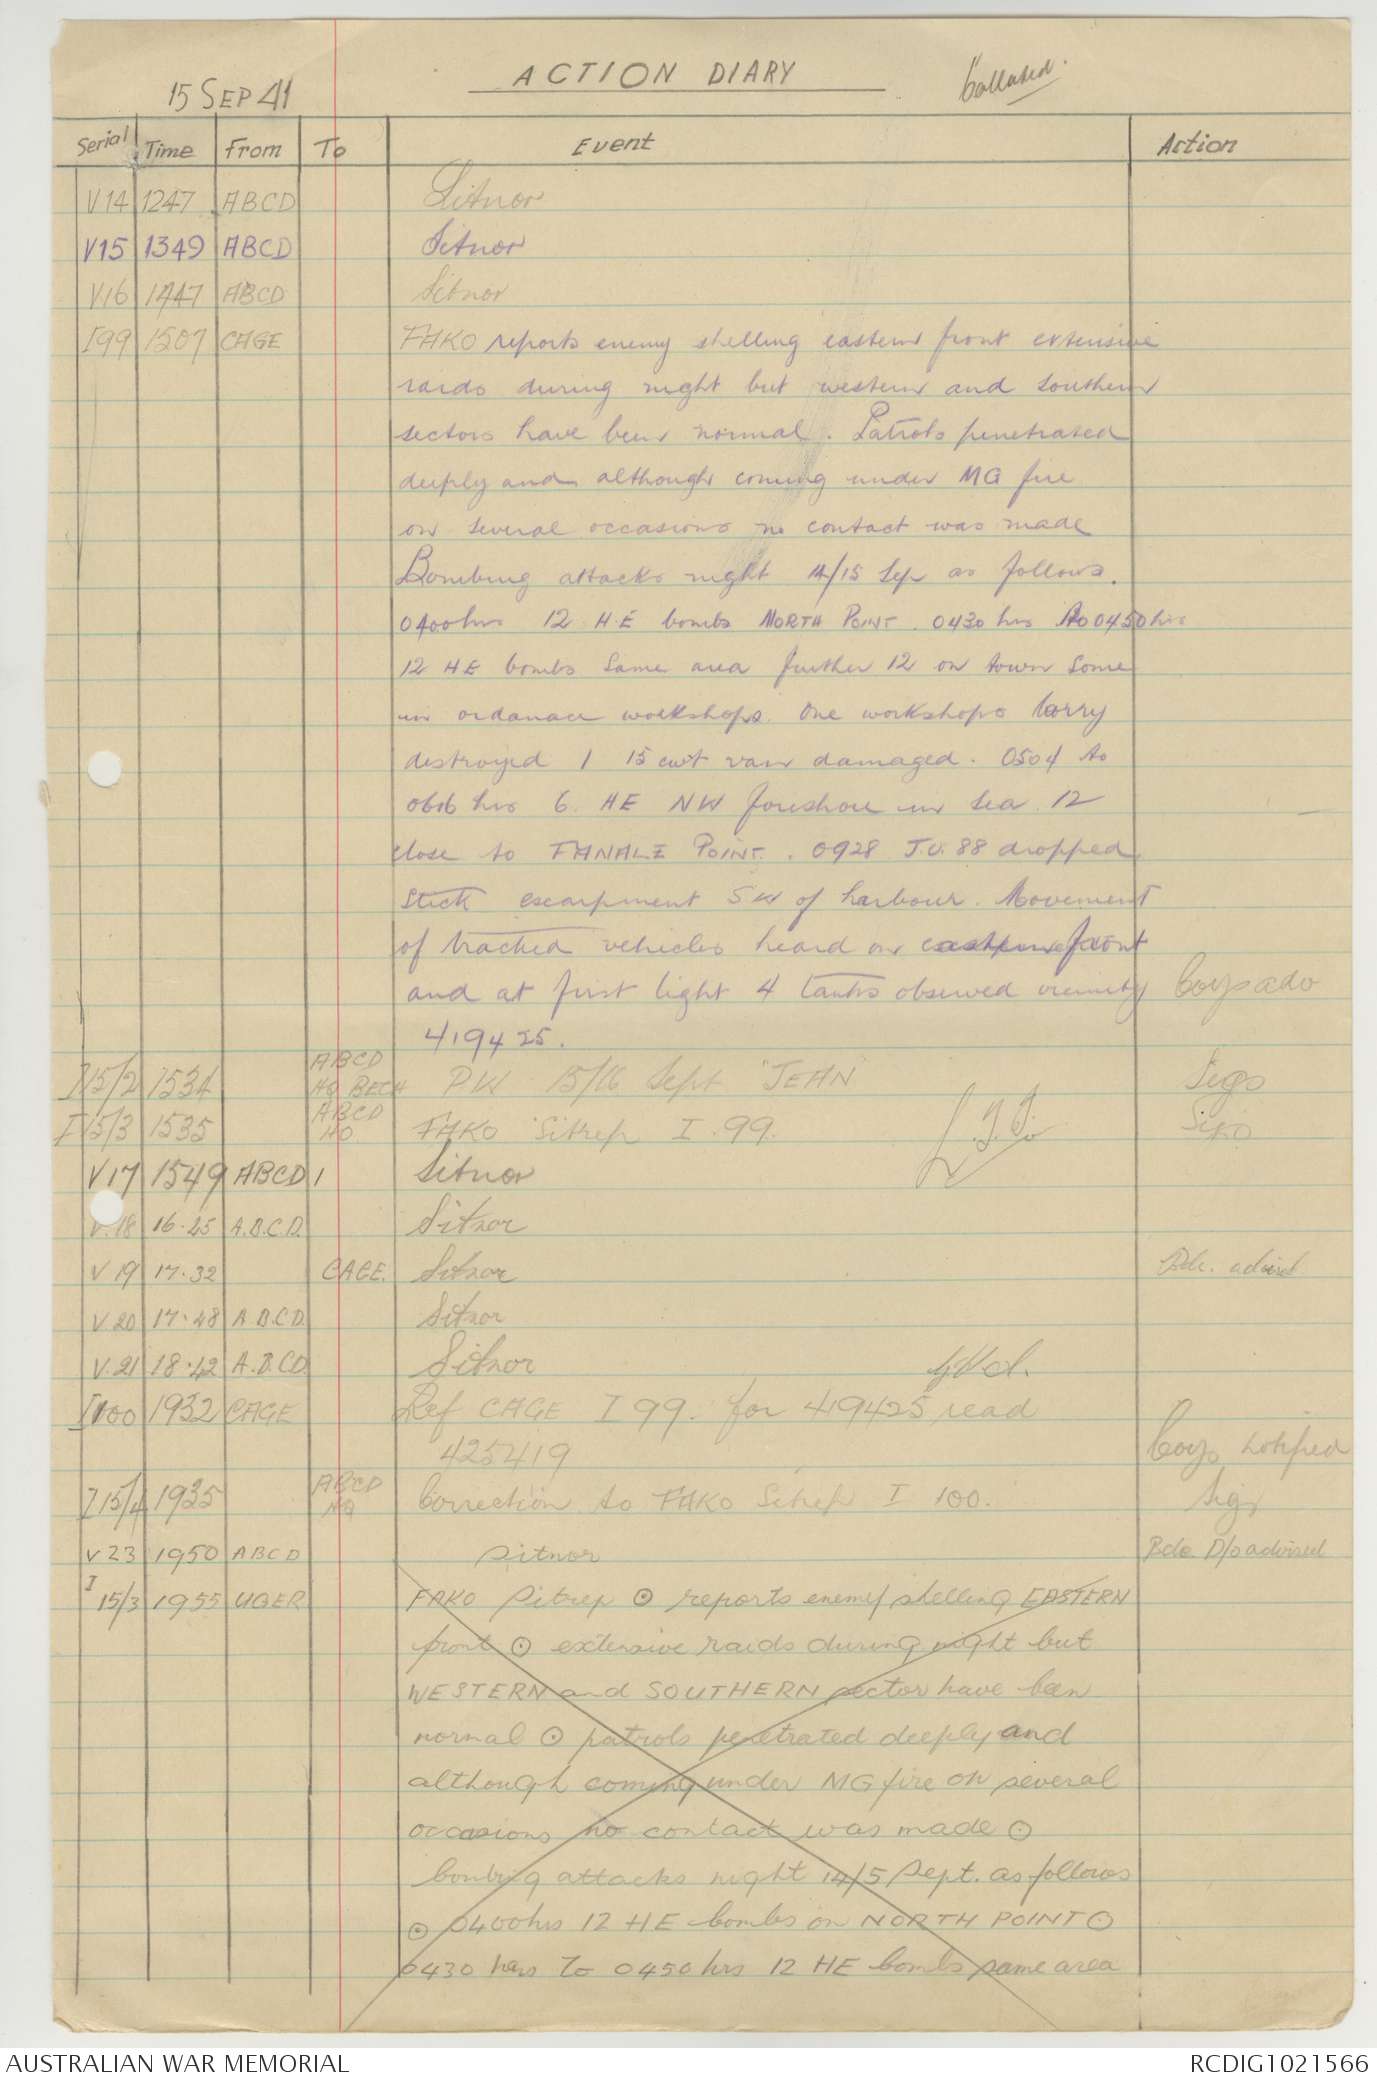 15 SEP 41
ACTION DIARY
Collated.
Serial Time From To Event Action
V14 1247 ABCD Sitnor
V15 1349 ABCD Sitnor
V16 1447 ABCD Sitnor
I99 1507 CAGE FAKO reports enemy shelling eastern front extensive
raids during night but western and southern
sectors have been normal. Patrols penetrated
deeply and although coming under MG fire
on several occasions no contact was made
Bombing attacks night 14/15 Sep as follows.
0400hrs 12 HE bombs NORTH POINT. 0430 hrs to 0450 hrs
12 HE bombs same area further 12 on town some
in ordanace workshops. One workshops lorry
destroyed 1 15 cwt van damaged. 0504 to
0616 hrs 6. HE NW foreshore in sea. 12
close to FANALE POINT. 0928 J.U. 88 dropped
stick escarpment SW of harbour. Movement
of tracked vehicles heard on eastern front
and at first light 4 tanks observed vicinity
419425.
Coys ado
I15/2 1534 ABCD HQ BECH PW 15/16 Sept "JEAN" Sigs
I15/3 1535 ABCD HQ FAKO Sitrep I.99.
V17 1549 ABCD 1 Sitnor
V.18 16.25 A.B.C.D. Sitnor
V19 17.32 CAGE. Sitnor Bde. advised
V.20 17.48 A.B.C.D. Sitnor
V.21 18.42 A.B.C.D. Sitnor
I100 1932 CAGE Ref CAGE I 99. for 419425 read
425419
Coys notified
I15/4 1935 ABCD HQ Correction to FAKO Sitrep I 100. Sigs
V23 1950 ABCD Sitnor Bde D/o advised
I 15/3 1955 UGER FAKO Sitrep ⊙ reports enemy shelling EASTERN
front ⊙ extensive raids during night but
WESTERN and SOUTHERN sector have been
normal ⊙ patrols penetrated deeply and
although coming under MG fire on several
occasions no contact was made ⊙
bombing attacks night 14/5 Sept. as follows
⊙ 0400hrs 12 HE bombs on NORTH POINT ⊙
0430 hrs to 0450 hrs 12 HE bombs same area
AUSTRALIAN WAR MEMORIAL
RCDIG1021566